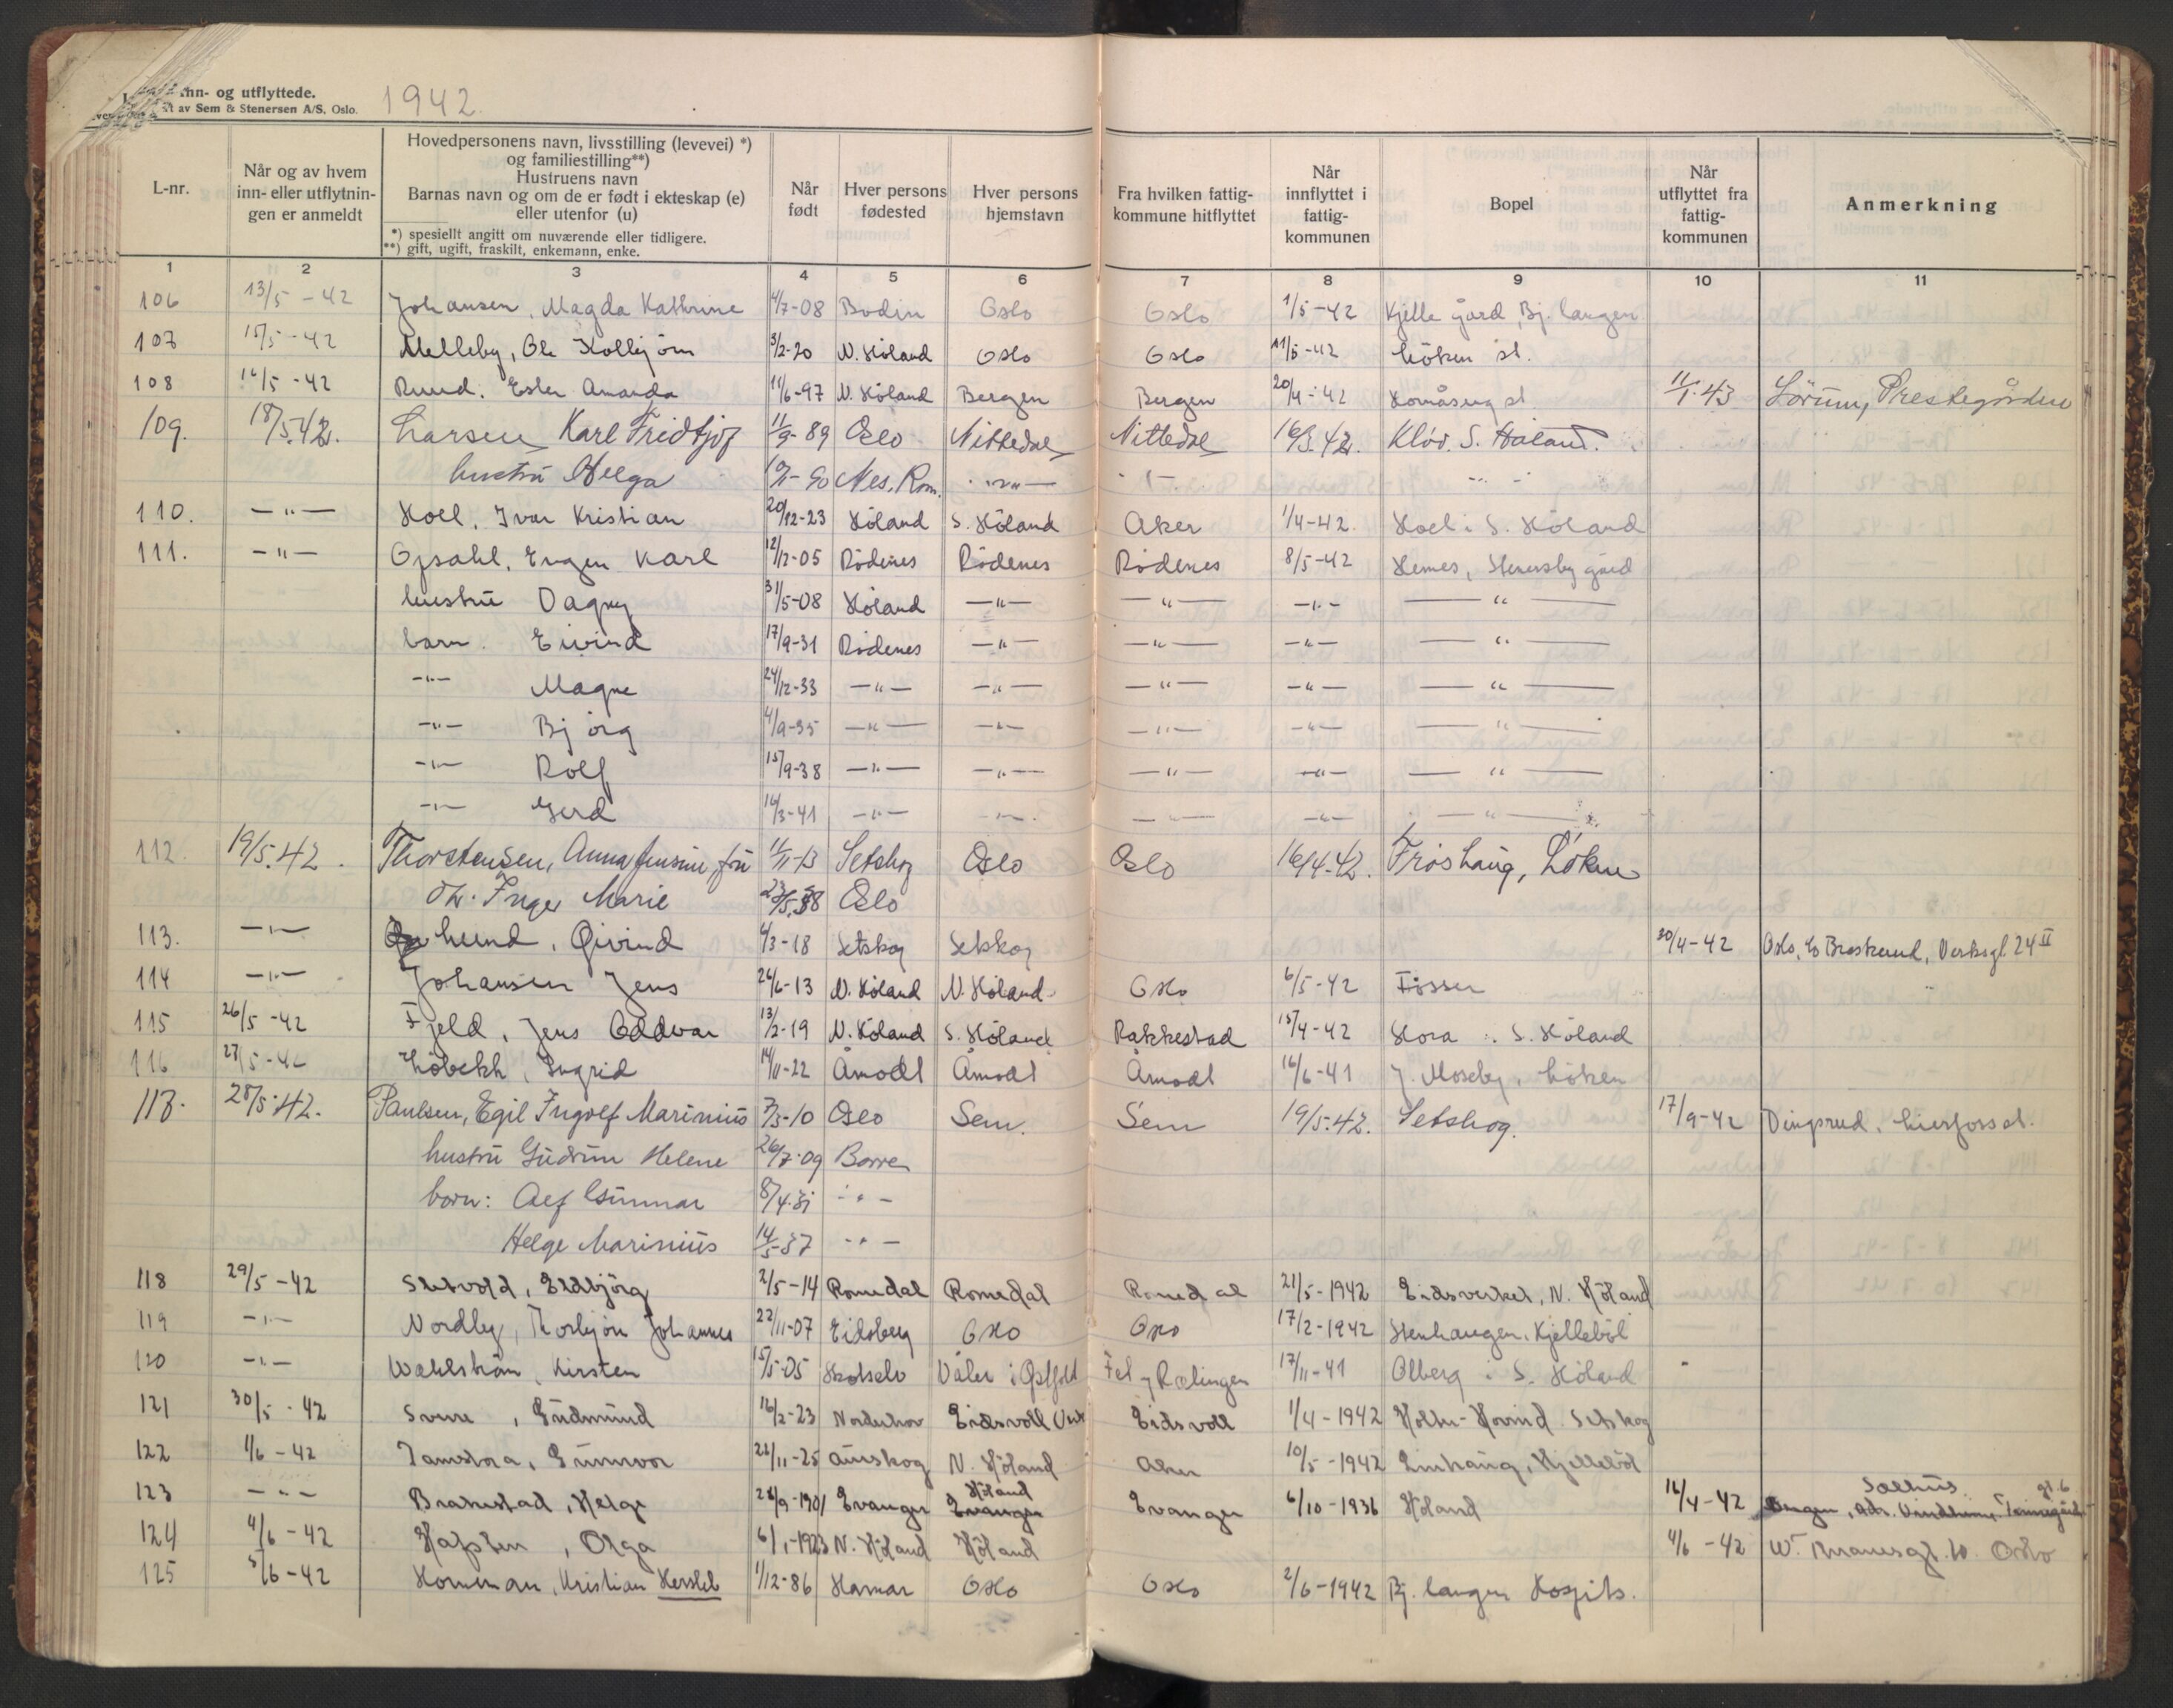 inn- og utflyttede.
av Sem & Stenersen A/S, Oslo.
1942.
L-nr.
Når og av hvem inn- eller utflytnin-gen er anmeldt
Hovedpersonens navn, livsstilling (levevei) *)
og familiestilling**)
Hustruens navn
Barnas navn og om de er født i ekteskap (e)
eller utenfor (u)
*) spesiellt angitt om nuværende eller tidligere.
**) gift, ugift, fraskilt, enkemann, enke.
Når født
Hver persons fødested
Hver persons hjemstavn
Fra hvilken fattig-kommune hitflyttet
Når innflyttet i fattig-kommunen
Bopel
Når utflyttet fra fattig-kommunen
Anmerkning
1 2 3 4 5 6 7 8 9 10 11
106 13/5-42 Johansen, Magda Kathrine 4/7-08 Bodin Oslo Oslo 1/5-42 Kjelle gård, Bj. langen
107 15/5-42 Melleby, Ole Kolbjörn 3/2-20 N. Höland Oslo Oslo 11/5-42 Löken st.
108 16/5-42 Ruud. Ester Amanda 11/6-97 N. Höland Bergen Bergen 20/4-42 Komåseng st 11/1-43 Sörum, Prestegården
109. 18/5.42. Larsen Karl Fridtjof 11/9-89 Oslo Nittedal Nittedal 16/3.42. Kløv. S. Høland.
hustru Helga Nes, Rom. -"- -"- -"-
110. -"- Hoel, Ivar Kristian 20/12-23 Höland S. Höland Aker 1/4-42. Hoel i S. Höland
111. -"- Opsahl, Eugen Karl 12/12-05 Rödenes Rödenes Rödenes 8/5-42 Hemnes, Henersby gård
hustru Dagny 31/5-08 Höland -"- -"- -"- -"-
barn. Eivind 17/9-31 Rödenes -"- -"- -"- -"-
-"- Magne 24/12-33 -"- -"- -"- -"- -"-
-"- Björg 4/9-35 -"- -"- -"- -"- -"-
-"- Rolf 15/9-38 -"- -"- -"- -"- -"-
-"- Gerd 16/3-41 -"- -"- -"- -"- -"-
112. 19/5.42. Thorstensen, Anna Jensine, fru 11/11-13 Setskog Oslo Oslo 16/4-42. Frøshaug, Løken
dtr. Inger Marie 23/5.38 Oslo
113. -"- lund, Øivind 4/3-18 Setskog Setskog 30/4-42 Oslo, Verksgt. 24 II
114 -"- Johansen Jens 26/6-13 N. Höland N. Höland Oslo 6/5-42 Fosser
115 26/5-42 Fjeld, Jens Oddvar 13/2-19 N. Höland S. Höland Rakkestad 15/4-42 Hora i S. Höland
116 27/5-42 Löbekk, Ingrid 14/11-22 Åmodt Åmodt Åmodt 16/6-41 J. Moseby, Löken
117. 28/5.42. Paulsen, Egil Ingolf Marinius 7/3-10 Oslo Sem. Sem 19/5.42. Setskog. 17/9-42 Dingsrud, Lierfoss st.
hustru Gudrun Helene 26/7-09 Borre
barn: Alf Gunnar 8/4.31 -"-
Helge Marinius 14/5-37 -"-
118 29/5-42 Sletvold, Eldbjörg 2/5-14 Romedal Romedal Romedal 21/5-1942 Eidsverket, N. Höland
119 -"- Nordby, Thorbjörn Johannes 22/11-07 Eidsberg Oslo Oslo 17/2-1942 Stenhaugen, Kjelleböl
120 -"- Wahlström, Kirsten 15/5-05 Skotselv Våler i Østfold Fet og Rælingen 17/11-41 Olberg i S. Höland
121 30/5-42 Svere, Gudmund 16/2-23 Norderhov Eidsvoll Verk Eidsvoll 1/4-1942 Holter-Hovind Setskog
122 1/6-42 Jamstora, Gunnvor 22/11-25 Aurskog N. Höland Aker 10/5-1942 Linhaug, Kjelleböl
123 -"- Brakestad, Helge 28/9-1901 Evanger Höland Evanger Evanger 6/10-1936 Höland 16/4-42 Salhus.
124 4/6-42 Hafsten, Olga 6/1-1923 N. Höland Höland 4/6-42 W. Thranesgt. 10. Oslo
125 5/6-42 Homman, Kristian Hersleb 1/12-86 Hamar Oslo Oslo 2/6-1942 Bj. langen Hospits.